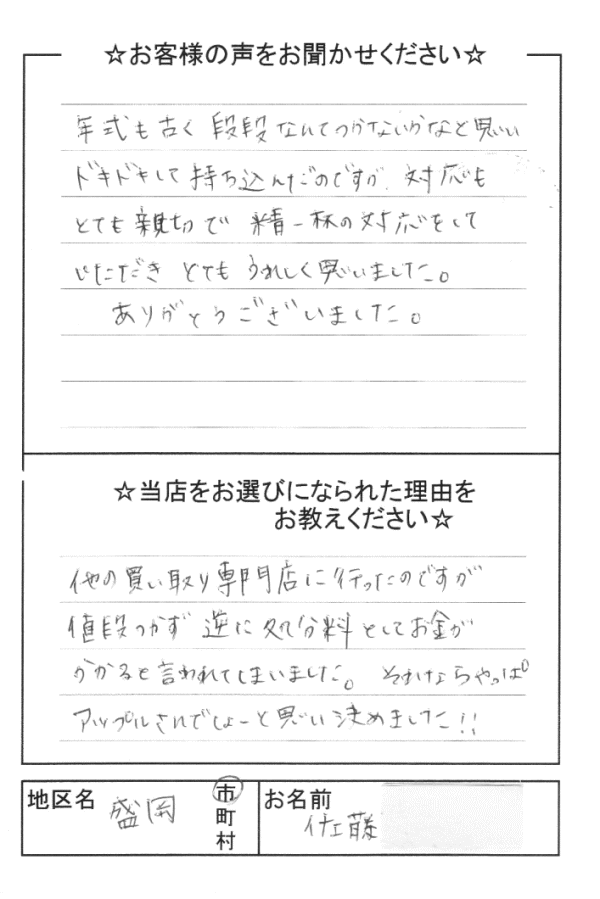 ☆お客様の声をお聞かせください☆
年式も古く 段段なんてつかないかなと思い
ドキドキして持ち込んだのですが、対応も
とても親切で 精一杯の対応をして
いただき とても うれしく思いました。
ありがとうございました。
☆当店をお選びになられた理由を
お教えください☆
他の買い取り専門店に行ったのですが
値段つかず 逆に処分料としてお金が
かかると言われてしまいました。 それならやっぱ
アップルさんでしょーと思い決めました!!
地区名 盛岡 市
町
村
お名前 佐藤